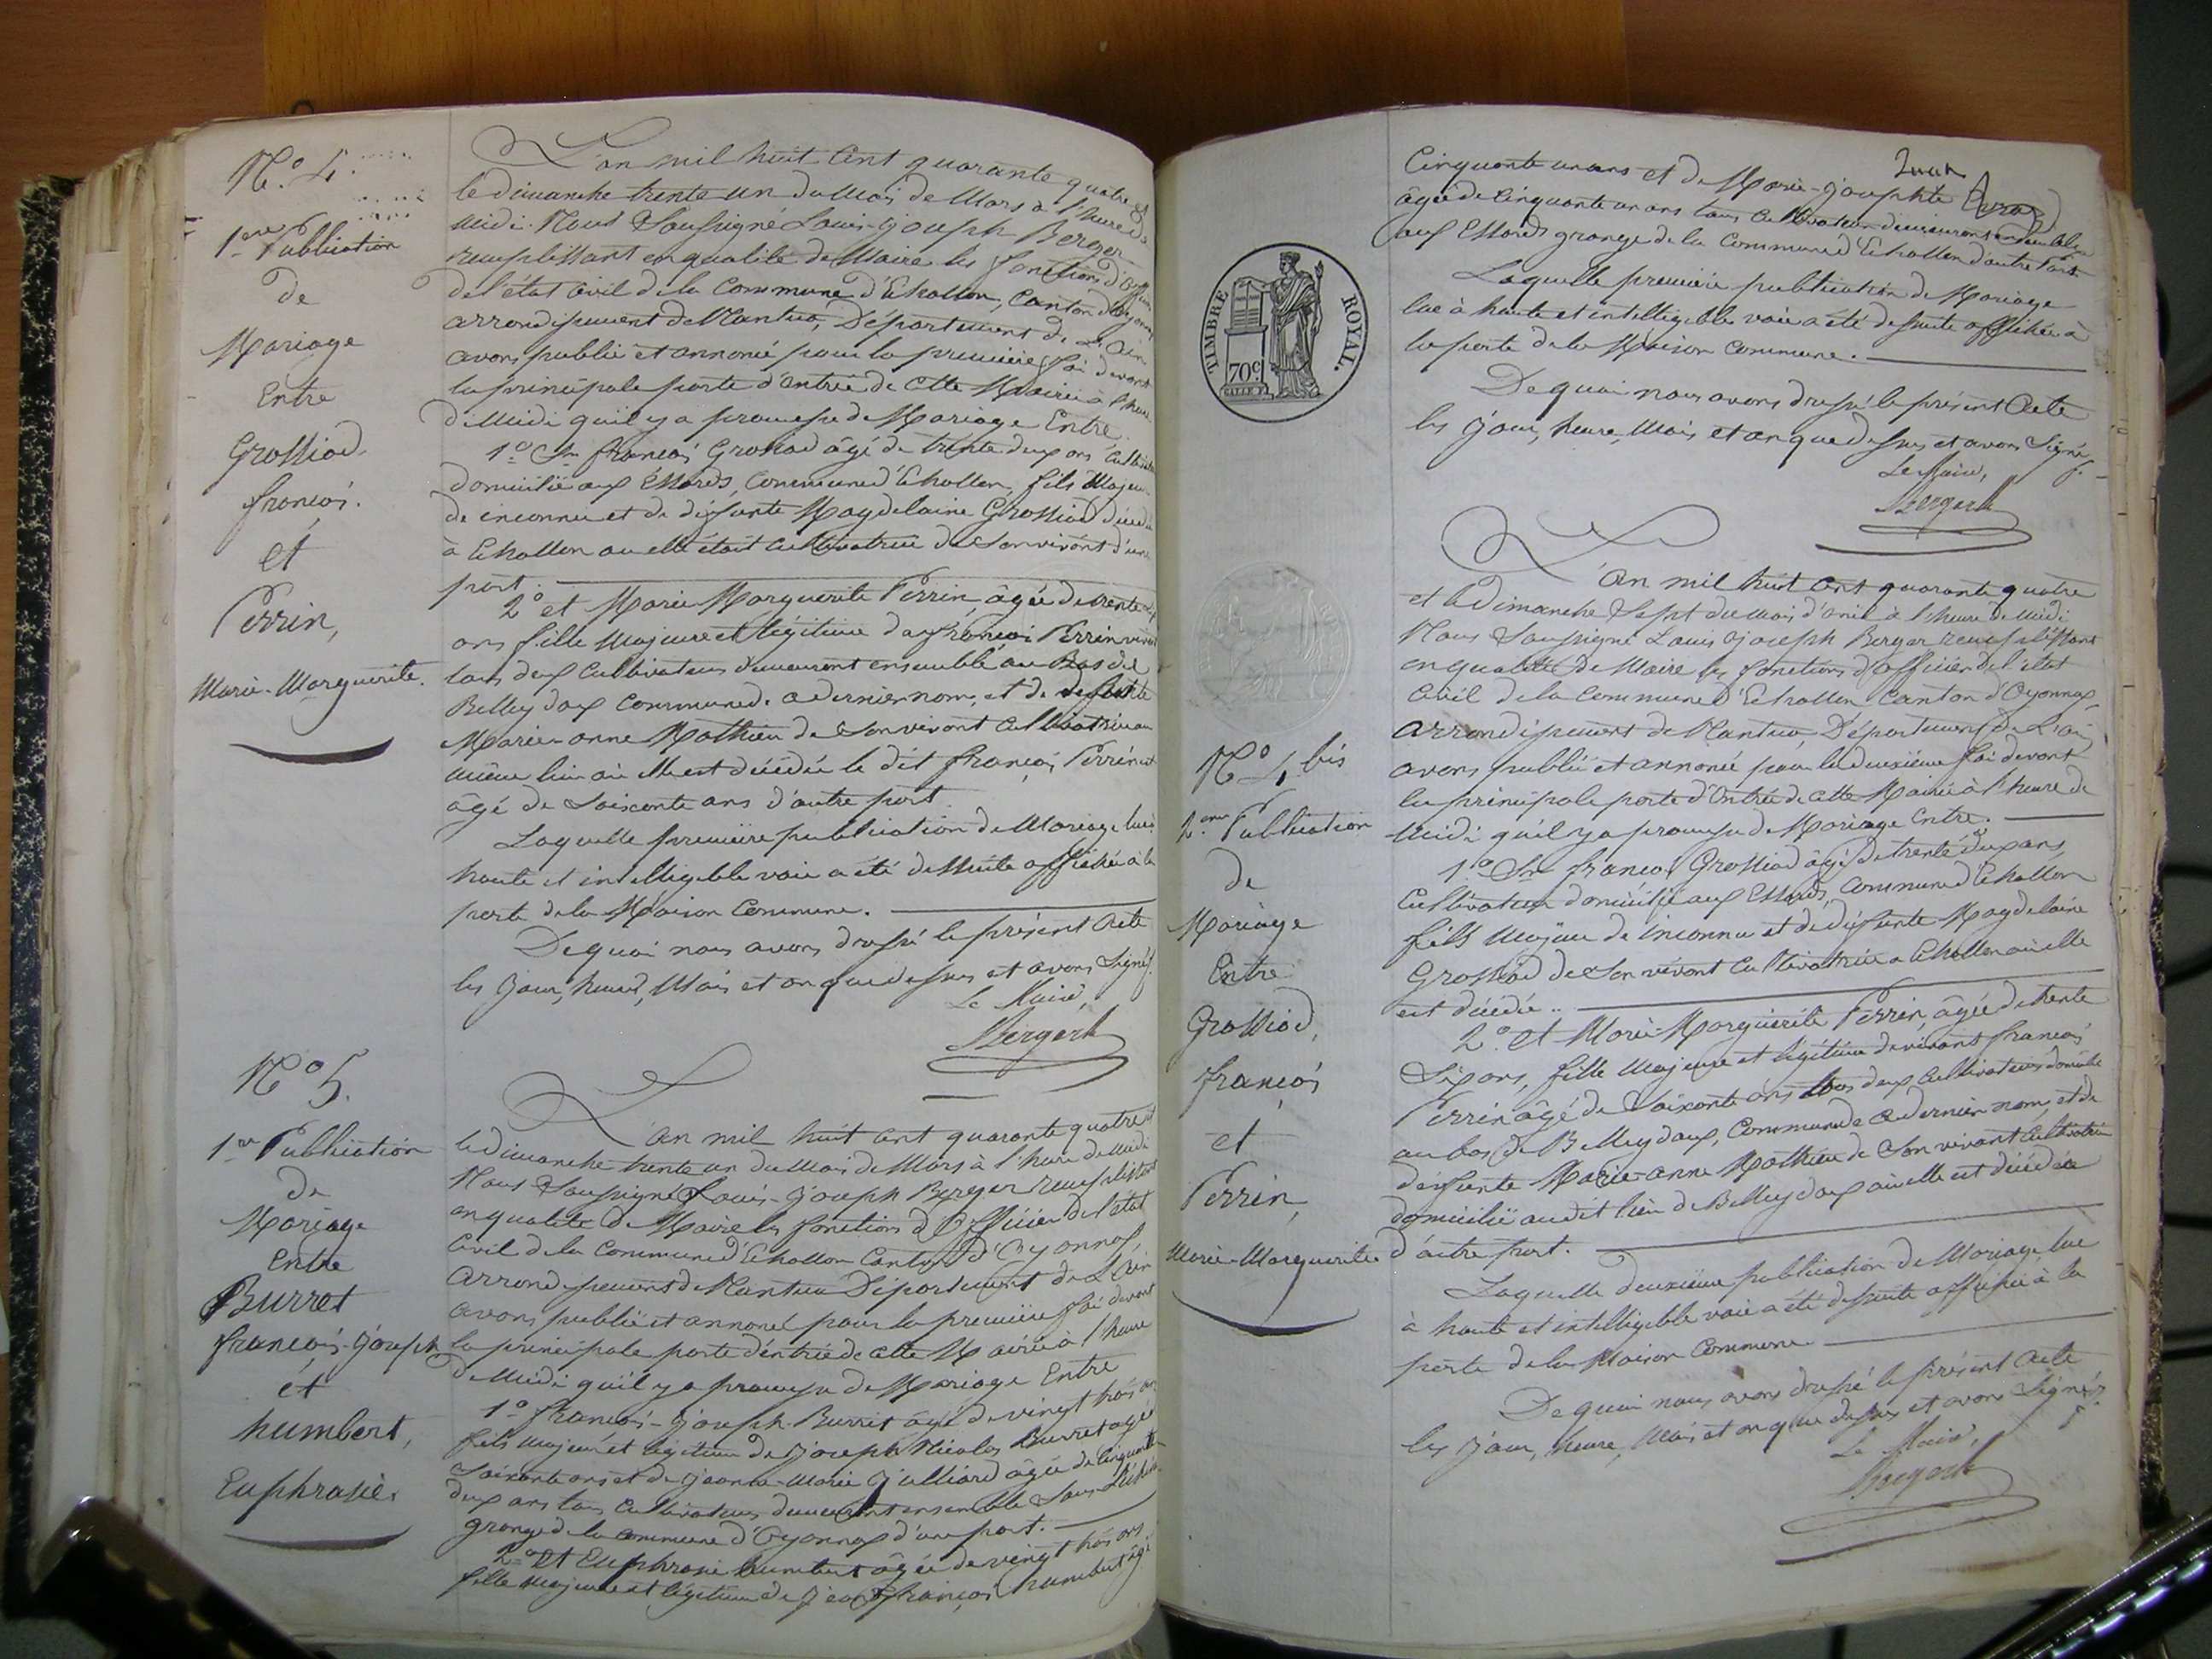 N.o 4.
1ere Publication
de
Mariage
Entre
Grossiod
françois.
et
Perrin,
Marie-Marguerite.
L'an mil huit Cent quarante quatre et
le dimanche trente un du Mois de Mars à l'heure de
Midi. Nous Soussigné Louis-joseph Berger
remplissant en qualité de Maire les fonctions d'officier
de l'état Civil de la Commune d'Echallon, Canton d'Oyonnax
arrondissement de Nantua, Département de L'Ain
avons publié et annoncé pour la première foi devant
la principale porte d'entrée de Cette Mairie à l'heure
de Midi qu'il y a promesse de Mariage Entre
1.o Sr. françois Grossiod âgé de trente deux ans Cultivateur
domicilié aux Essards, Commune d'Echallon, fils Majeur
de inconnu et de défunte Magdelaine Grossiod décédée
à Echallon ou elle était Cultivatrice de Son vivant d'une
part.
2.o et Marie Marguerite Perrin âgée de trente six
ans fille Majeure et légitime de françois Perrin vivant
tous deux Cultivateurs demeurant ensemble au Bas de
Belleydoux Commune de Ce dernier nom, et de defunte
Marie-anne Mathieu de Son vivant Cultivatrice au
même lieu où elle est décédée le dit françois Perrin est
âgé de Soixante ans d'autre part.
Laquelle première publication de Mariage lue à
haute et intelligible voie a été de Suite affichée à la
porte de la Maison Commune.
De quoi nous avons dressé le présent Acte
les Jour, heure, Mois et an que dessus et avons Signé.
Le Maire,
Bergert
N.o 5.
1re Publication
de
Mariage
Entre
Burret
françois-joseph
et
humbert,
Euphrasie.
L'an mil huit Cent quarante quatre et
le dimanche trente un du Mois de Mars à l'heure de Midi
Nous Soussigné Louis-joseph Berger remplissant
en qualité de Maire les fonctions d'Officier de l'état
Civil de la Commune d'Echallon Canton d'Oyonnax,
Arrondissement de Nantua Département de L'Ain
avons publié et annoncé pour la première foi devant
la principale porte d'entrée de Cette Mairie à l'heure
de Midi qu'il y a promesse de Mariage Entre
1.o françois-joseph Burret âgé de vingt trois ans
fils Majeur et légitime de Joseph Nicolas Burret agé
Soixante ans et de Jeanne-Marie Julliard âgée de Cinquante
deux ans tous Cultivateurs demeurant ensemble Sous
grange de la Commune d'Oyonnax d'une part.
2.o et Euphrasie humbert âgée de vingt trois ans
fille Majeure et légitime de Jean françois humbert âgé
Cinquante un ans et de Marie-josephte
âgée de Cinquante un ans tous Cultivateurs demeurant ensemble
aux Essards grange de la Commune d'Echallon d'autre Part
Laquelle première publication de Mariage
lue à haute et intelligible voie a été de Suite affichée à
la porte de la Maison Commune.
De quoi nous avons dressé le présent Acte
les Jour, heure, Mois et an que dessus et avons Signé.
Le Maire,
Bergert
TIMBRE ROYAL.
70c
N.o 4 bis
2eme Publication
de
Mariage
Entre
Grossiod,
françois
et
Perrin,
Marie-Marguerite
L'an mil huit Cent quarante quatre
et le Dimanche Sept du mois d'avril à l'heure de Midi
Nous Soussigné Louis joseph Berger remplissant
en qualité de Maire les fonctions d'officier de l'état
Civil de la Commune d'Echallon Canton d'Oyonnax,
Arrondissement de Nantua, Département de L'ain
avons publié et annoncé pour la deuxième foi devant
la principale porte d'Entrée de Cette Mairie à l'heure de
Midi qu'il y a promesse de Mariage Entre.
1.o Sr. françois Grossiod âgé de trente deux ans
Cultivateur domicilié aux Essards, Commune d'Echallon
fils Majeur de inconnu et de défunte Magdelaine
Grossiod de Son vivant Cultivatrice a Echallon où elle
est décédée..
2.o et Marie-Marguerite Perrin, âgée de trente
Six ans, fille Majeure et légitime de vivant francois
Perrin âgé de Soixante ans tous deux Cultivateurs domicilié
au bas de Belleydoux, Commune de Ce dernier nom, et de
défunte Marie-anne Mathieu de Son vivant Cultivatrice
domicilié audit lieu de Belleydoux où elle est décédée
d'autre part.
Laquelle deuxième publication de Mariage, lue
à haute et intelligible voie a été de suite affichée à la
porte de la Maison Commune.
De quoi nous avons dressé le présent Acte
les Jour, heure, Mois et an que dessus et avons Signé.
Le Maire,
Bergert